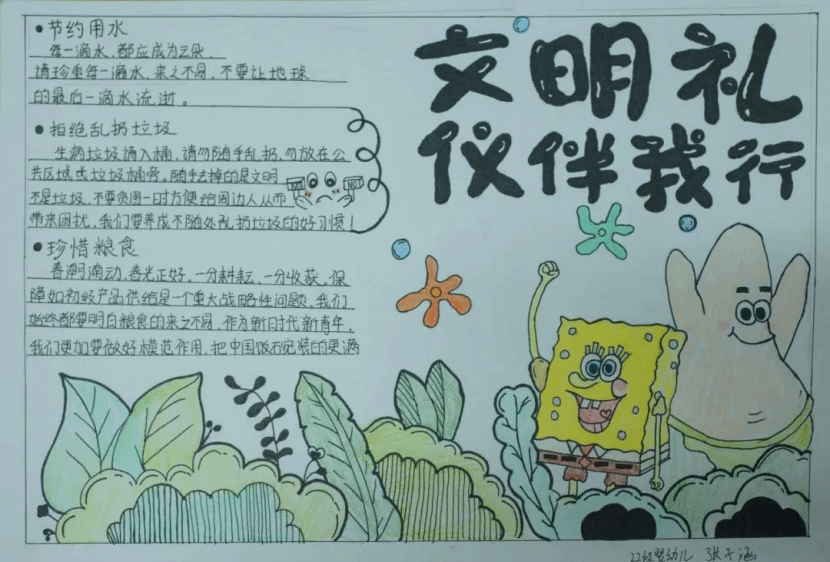 文明礼
仪伴我行
•节约用水
每一滴水，都应成为云朵，
请珍重每一滴水，来之不易，不要让地球
的最后一滴水流逝。
•拒绝乱扔垃圾
生病垃圾请入桶，请勿随手乱扔，勿放在公
共区域或垃圾桶旁。随手丢掉的是文明
不是垃圾，不要贪图一时方便给周边人从而
带来困扰，我们要养成不随处乱扔垃圾的好习惯！
•珍惜粮食
春潮涌动，春光正好。一分耕耘，一分收获，保
障如初级产品供给是一个重大战略性问题。我们
始终都要明白粮食的来之不易，作为新时代新青年，
我们更加要做好模范作用，把中国饭碗装的更满
22级婴幼儿 张子涵